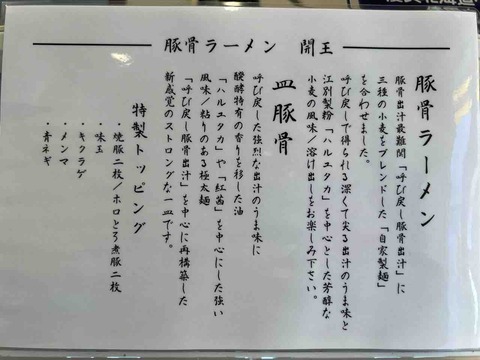 豚骨ラーメン 開王
豚骨ラーメン
豚骨出汁最難関「呼び戻し豚骨出汁」に
三種の小麦をブレンドした「自家製麺」
を合わせました。
呼び戻しで得られる深くて尖る出汁のうま味と
江別製粉「ハルユタカ」を中心とした芳醇な
小麦の風味／溶け出しをお楽しみ下さい。
皿豚骨
呼び戻した強烈な出汁のうま味に
醗酵特有の香りを移した油
「ハルユタカ」や「紅茜」を中心にした強い
風味／粘りのある極太麺
「呼び戻し豚骨出汁」を中心に再構築した
新感覚のストロングな一皿です。
特製トッピング
・焼豚二枚／ホロとろ煮豚二枚
・味玉
・キクラゲ
・メンマ
・青ネギ